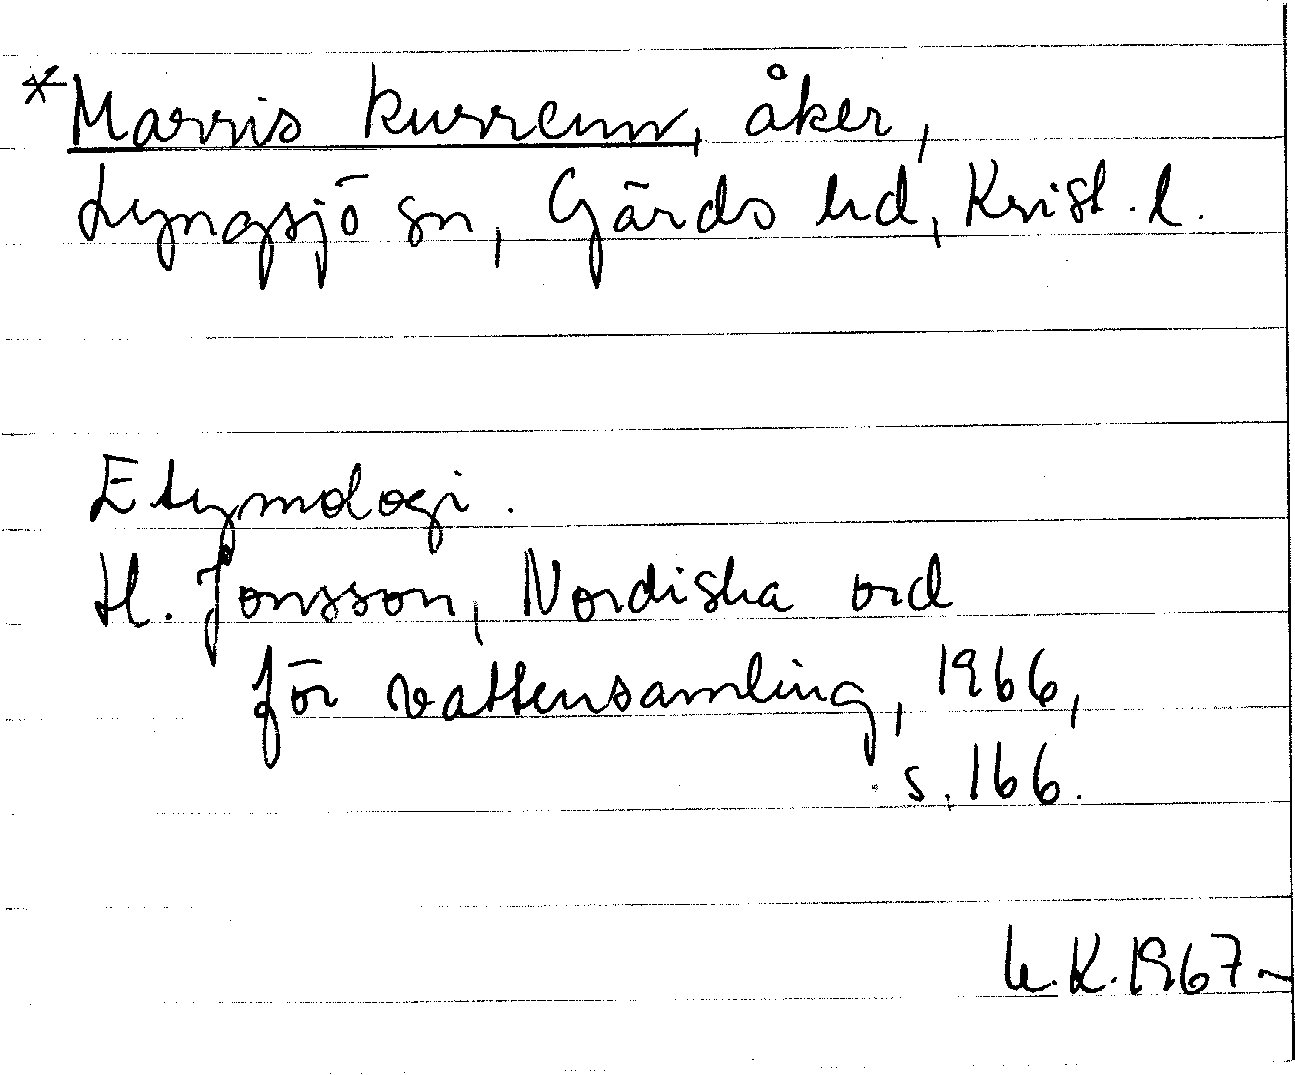 *Marris kurrenn, åker,
Lyngsjö sn, Gärds hd, Krist. l.
Etymologi.
H. Jonsson, Nordiska ord
för vattensamling, 1966,
s. 166.
K. 1967